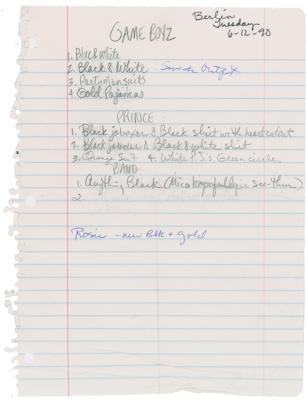 Berlin
Tuesday
6-12-90
GAME BOYZ
1. Blue & White
2. Black & White
3. Partyman suits
4. Gold Pajamas
PRINCE
1. Black & Black shirt with heart cutout
2. Black & Black & white shirt
3. Orange Suit 4. White P.J.'s Green circles
BAND
1. Anything Black (Mico hopefully in see-thru)
2.
Rosie - new Blk & Gold